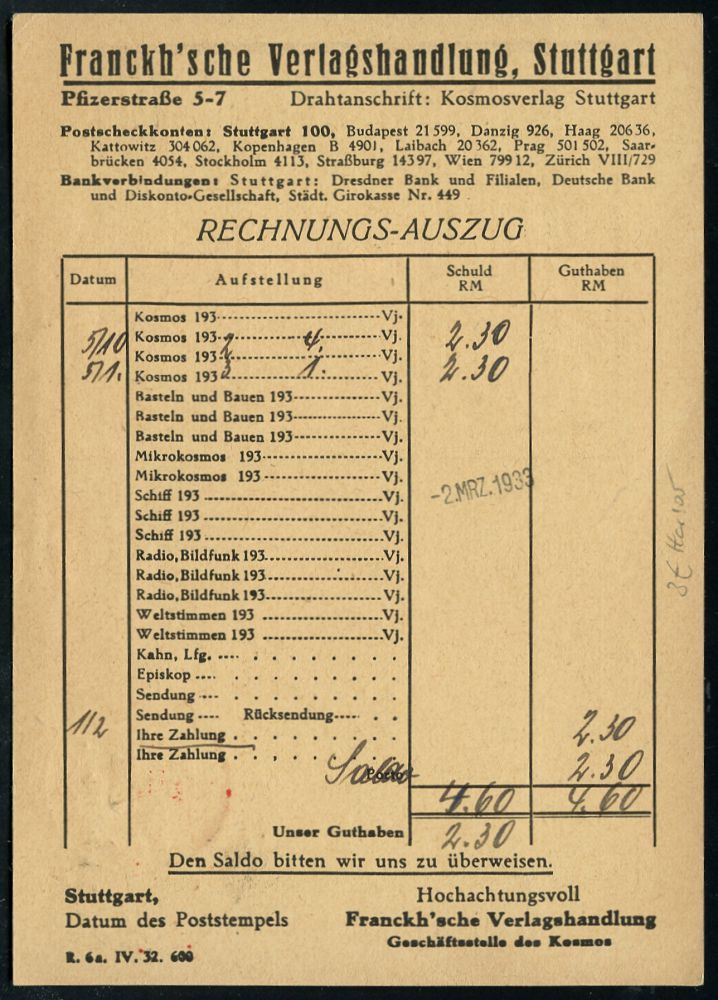 Franckh'sche Verlagshandlung, Stuttgart
Pfizerstraße 5-7 Drahtanschrift: Kosmosverlag Stuttgart
Postscheckkonten: Stuttgart 100, Budapest 21 599, Danzig 926, Haag 206 36,
Kattowitz 304 062, Kopenhagen B 4901, Laibach 20 362, Prag 501 502, Saar-
brücken 4054, Stockholm 4113, Straßburg 143 97, Wien 799 12, Zürich VIII/729
Bankverbindungen: Stuttgart: Dresdner Bank und Filialen, Deutsche Bank
und Diskonto-Gesellschaft, Städt. Girokasse Nr. 449
RECHNUNGS-AUSZUG
Datum Aufstellung Schuld RM Guthaben RM
Kosmos 193 Vj.
5/10 Kosmos 193 2 4. Vj. 2.30
Kosmos 193 Vj.
5/1. Kosmos 193 3 1. Vj. 2.30
Basteln und Bauen 193 Vj.
Basteln und Bauen 193 Vj.
Basteln und Bauen 193 Vj.
Mikrokosmos 193 Vj.
Mikrokosmos 193 Vj.
Schiff 193 Vj.
-2.MRZ.1933
Schiff 193 Vj.
Schiff 193 Vj.
Radio, Bildfunk 193 Vj.
Radio, Bildfunk 193 Vj.
Radio, Bildfunk 193 Vj.
Weltstimmen 193 Vj.
Weltstimmen 193 Vj.
Kahn, Lfg.
Episkop
Sendung
Sendung Rücksendung
1/2 Ihre Zahlung 2.30
Ihre Zahlung 2.30
Saldo Porto
4.60 4.60
Unser Guthaben 2.30
Den Saldo bitten wir uns zu überweisen.
Stuttgart, Hochachtungsvoll
Datum des Poststempels Franckh'sche Verlagshandlung
Geschäftsstelle des Kosmos
R. 6a. IV. 32. 600